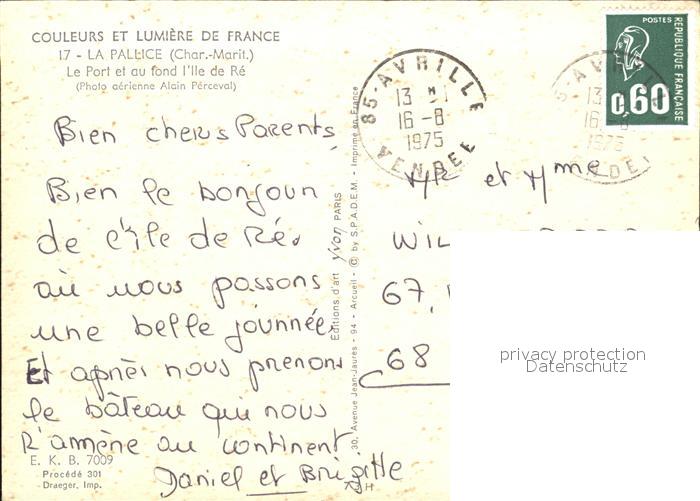 COULEURS ET LUMIÈRE DE FRANCE
17 - LA PALLICE (Char.-Marit.)
Le Port et au fond l'Ile de Ré
(Photo aérienne Alain Perceval)
Bien chers Parents,
Bien le bonjour
de l'île de Ré.
où nous passons
une belle journnée,
Et après nous prenons
le bâteau qui nous
R'amène au continent
Daniel et Brigitte
E. K. B. 7009
Procédé 301
Draeger, Imp.
Editions d'art yvon PARIS
30, Avenue Jean-Jaures - 94 - Arcueil - © by S.P.A.D.E.M. - Imprimé en France
85-AVRILLE
13 H
16-8
1975
VENDEE
POSTES
RÉPUBLIQUE FRANÇAISE
0,60
Mr et Mme
WIL
67,
68
privacy protection
Datenschutz